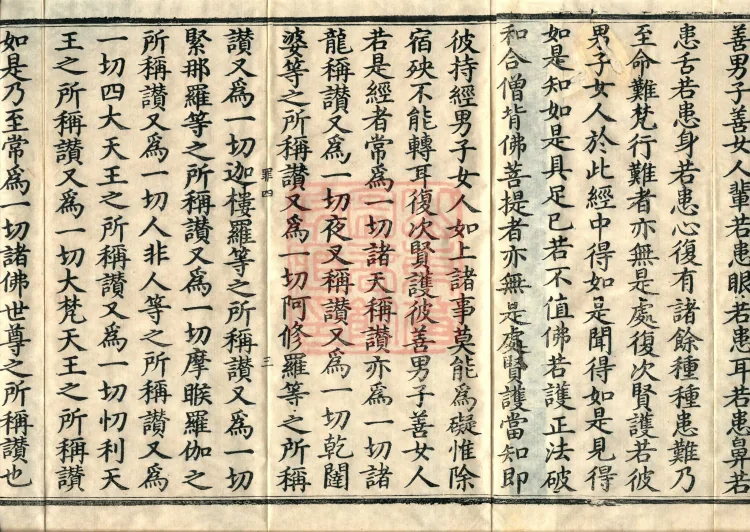 善男子善女人輩若患眼若患耳若患鼻若
患舌若患身若患心復有諸餘種種患難乃
至命難梵行難者亦無是處復次賢護若彼
男子女人於此經中得如是聞得如是見得
如是知如是具足已若不值佛若護正法破
和合僧背佛菩提者亦無是處賢護當知即
彼持經男子女人如上諸事莫能為礙惟除
宿殃不能轉耳復次賢護彼善男子善女人
若是經者常爲一切諸天稱讚亦爲一切諸
龍稱讚又爲一切夜叉稱讚又爲一切乾闥
婆等之所稱讚又爲一切阿修羅等之所稱
罪四
三
讚又爲一切迦樓羅等之所稱讚又爲一切
緊那羅等之所稱讚又爲一切摩睺羅伽之
所稱讚又爲一切人非人等之所稱讚又爲
一切四大天王之所稱讚又爲一切忉利天
王之所稱讚又爲一切大梵天王之所稱讚
如是乃至常爲一切諸佛世尊之所稱讚也